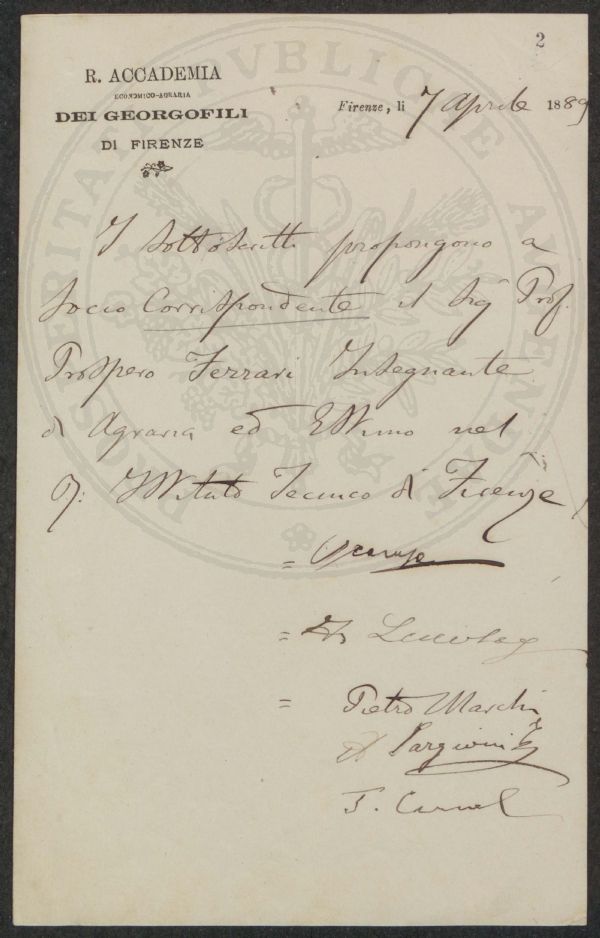 2
R. ACCADEMIA
ECONOMICO-AGRARIA
DEI GEORGOFILI
DI FIRENZE
Firenze, li 7 Aprile 1889
PROSPERITATI PVBLICAE AVGENDAE
I sottoscritti propongono a
Socio Corrispondente il Sig Prof.
Prospero Ferrari Insegnante
di Agraria ed Estimo nel
R: Istituto Tecnico di Firenze
=
=
= Pietro Marchi
T. Caruel